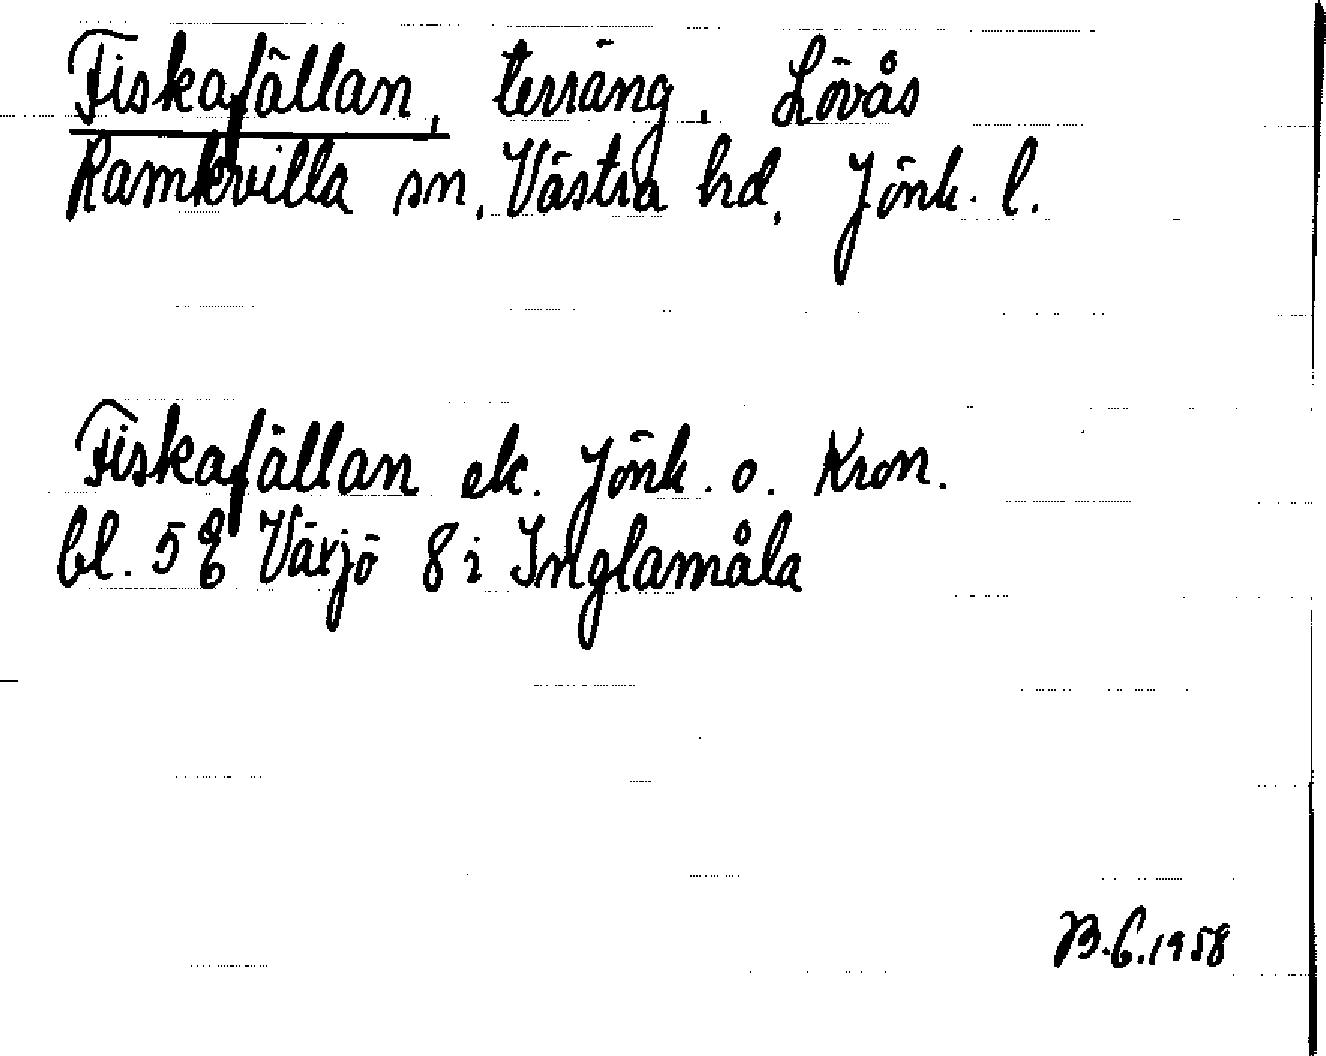 Fiskafällan, terräng, Lövås
Ramkvilla sn, Västra hd, Jönk. l.
Fiskafällan ek. Jönk. o. Kron.
bl. 5 E Växjö 8 i Inglamåla
B.C. 1958